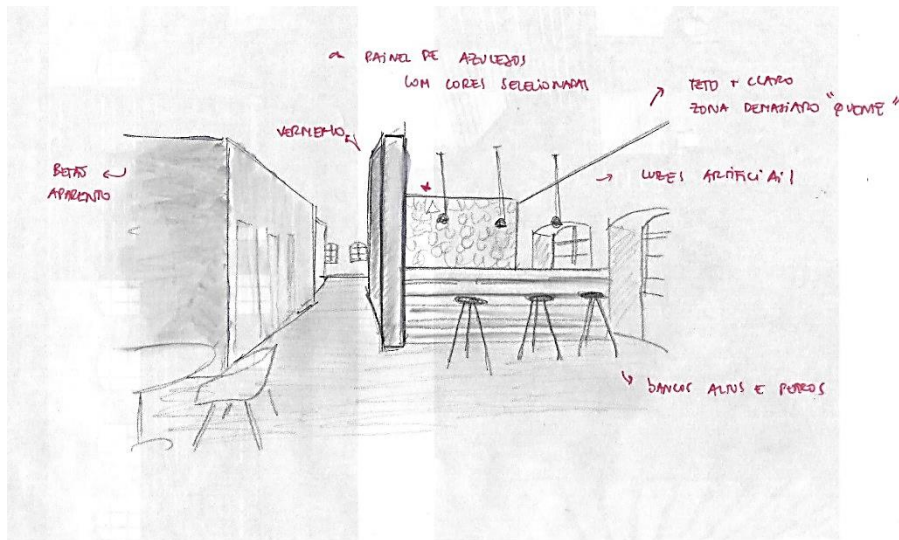 PAINEL DE AZULEJOS
COM CORES SELECIONADAS
TETO + CLARO
ZONA DEMASIADO "QUENTE"
VERMELHO
LUZES ARTIFICIAIS
APARENTO
BANCOS ALTOS E PRETOS